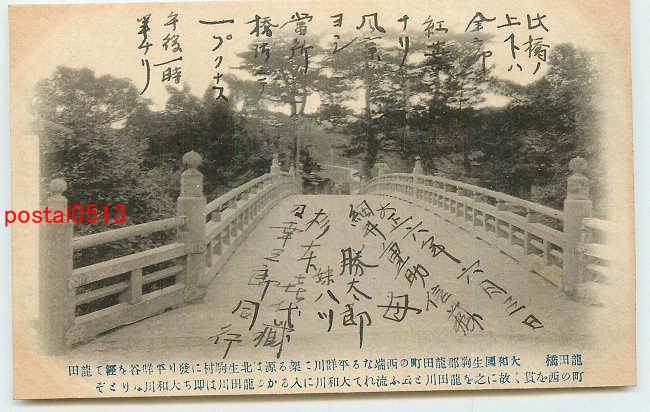 此橋ノ
上下ハ
全部
紅葉
ナリ
風景
ヨシ
當所
橋際ニテ
一プクナス
午後一時
半ナリ
大正六年 六月三日
運助
母
勝太郎
妹ハツ
杉本
三郎 同行
postal0513
龍田橋 大和國生駒郡龍田町の西端なる平群川に架る源は北生駒村に發り平群谷を經て龍田
町の西を貫く故に之を龍田川と云ふ流れて大和川に入るかゝる龍田川は即ち大和川なりとぞ